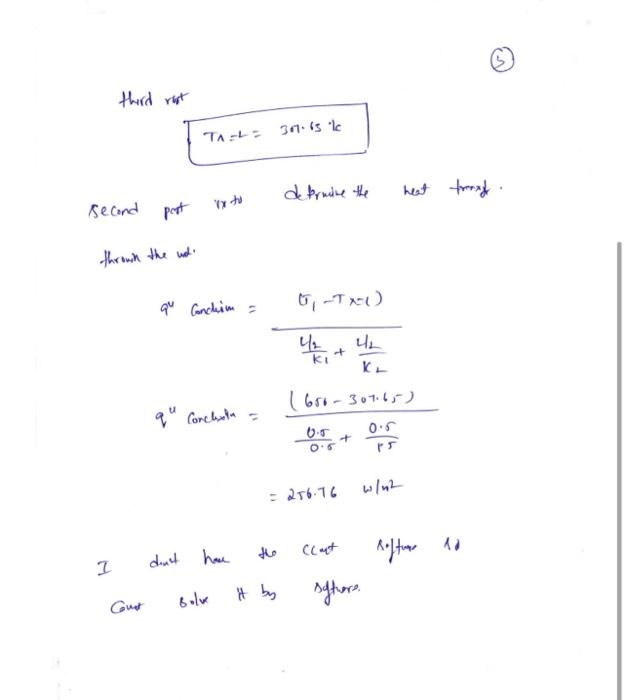 5
third root
Tx=L = 307.65 °K
Second part is to determine the heat transf.
through the wall.
q" Conduction = (T1 - Tx=L)
L/2 / K1 + L/2 / K2
q" Conduction = (650 - 307.65)
0.5 / 0.5 + 0.5 / 1.5
= 256.76 W/m2
I dont have the software so
Cannot Solve it by software.